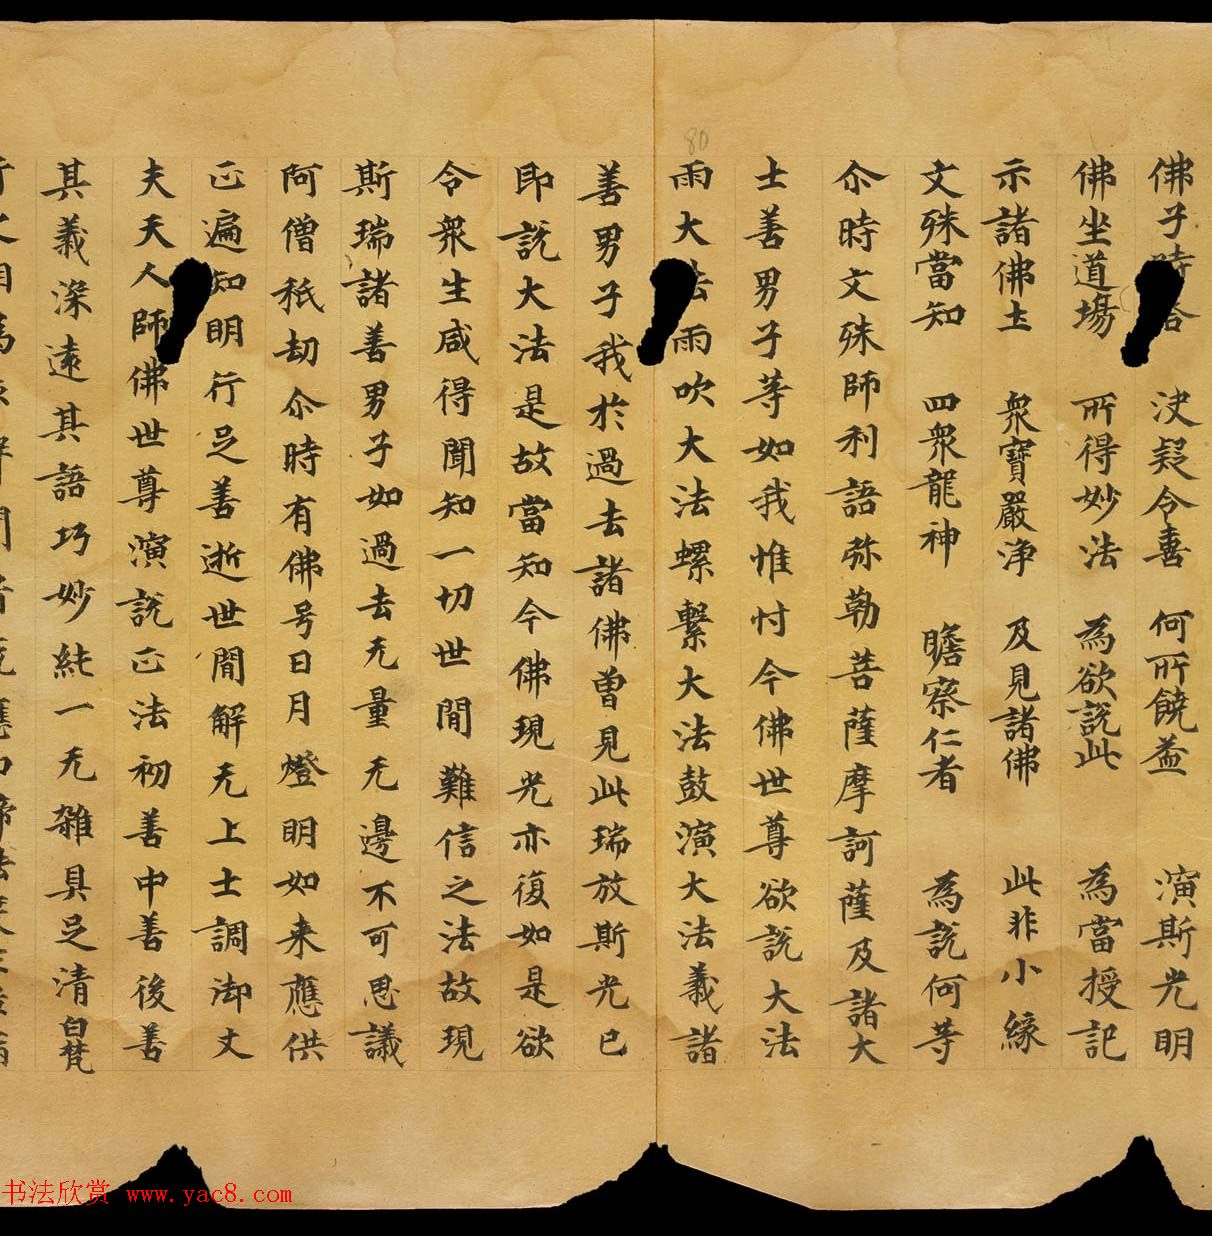 佛子時答　決疑令喜　何所饒益　演斯光明
佛坐道場　所得妙法　為欲說此　為當授記
示諸佛土　眾寶嚴淨　及見諸佛　此非小緣
文殊當知　四眾龍神　瞻察仁者　為說何等
尒時文殊師利語弥勒菩薩摩訶薩及諸大
士善男子等如我惟忖今佛世尊欲說大法
80
雨大法雨吹大法螺擊大法鼓演大法義諸
善男子我於過去諸佛曾見此瑞放斯光已
即說大法是故當知今佛現光亦復如是欲
令眾生咸得聞知一切世間難信之法故現
斯瑞諸善男子如過去无量无邊不可思議
阿僧祇劫尒時有佛号日月燈明如来應供
正遍知明行足善逝世間解无上士調御丈
夫天人師佛世尊演說正法初善中善後善
其義深遠其語巧妙純一无雜具足清白梵
书法欣赏 www.yac8.com